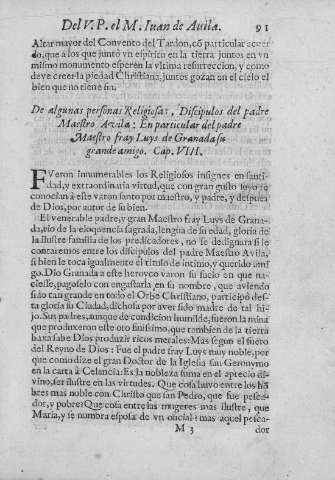 Del V. P. el M. Iuan de Auila. 91
Altar mayor del Convento del Tardon, cõ particular acuer
do, que a los que juntò vn espiritu en la tierra juntos en vn
mismo monumento esperen la vltima resurreccion, y como
deve creer la piedad Christiana, juntos gozan en el cielo el
bien que no tiene fin.
De algunas personas Religiosas, Discipulos del padre
Maestro Avila: En particular del padre
Maestro fray Luys de Granada su
grande amigo. Cap. VIII.
FVeron innumerables los Religiosos insignes en santi-
dad, y extraordinaria virtud, que con gran gusto suyo re
conocian à este varon santo por maestro, y padre, y despues
de Dios, por autor de su bien.
El venerable padre, y gran Maestro fray Luys de Grana-
da, rio de la eloquencia sagrada, lengua de su edad, gloria de
la ilustre familia de los predicadores, no se dedignara si le
contaremos entre los discipulos del padre Maestro Avila,
si bien le toca igualmente el titulo de intimo, y querido ami
go. Diò Granada a este heroyco varon su suelo en que na-
ciesse, pagoselo con engastarla en su nombre, que aviendo
sido tan grande en todo el Orbe Christiano, participò des-
ta gloria su Ciudad, dichosa por aver sido madre de tal hi-
jo. Sus padres, aunque de condicion humilde, fueron la mina
que produxeron este oro finissimo, que tambien de la tierra
baxa sabe Dios produzir ricos metales: Mas segun el fuero
del Reyno de Dios: Fue el padre fray Luys muy noble, por
que como dize el gran Doctor de la Iglesia san Geronymo
en la carta à Celancia: Es la nobleza suma en el aprecio di-
vino, ser ilustre en las virtudes. Que cosa huvo entre los hõ
bres mas noble con Christo que san Pedro, que fue pesca-
dor, y pobre? Que cosa entre las mugeres mas ilustre, que
Maria, y se nombra esposa de vn oficial: mas aquel pesca-
M 3 dor